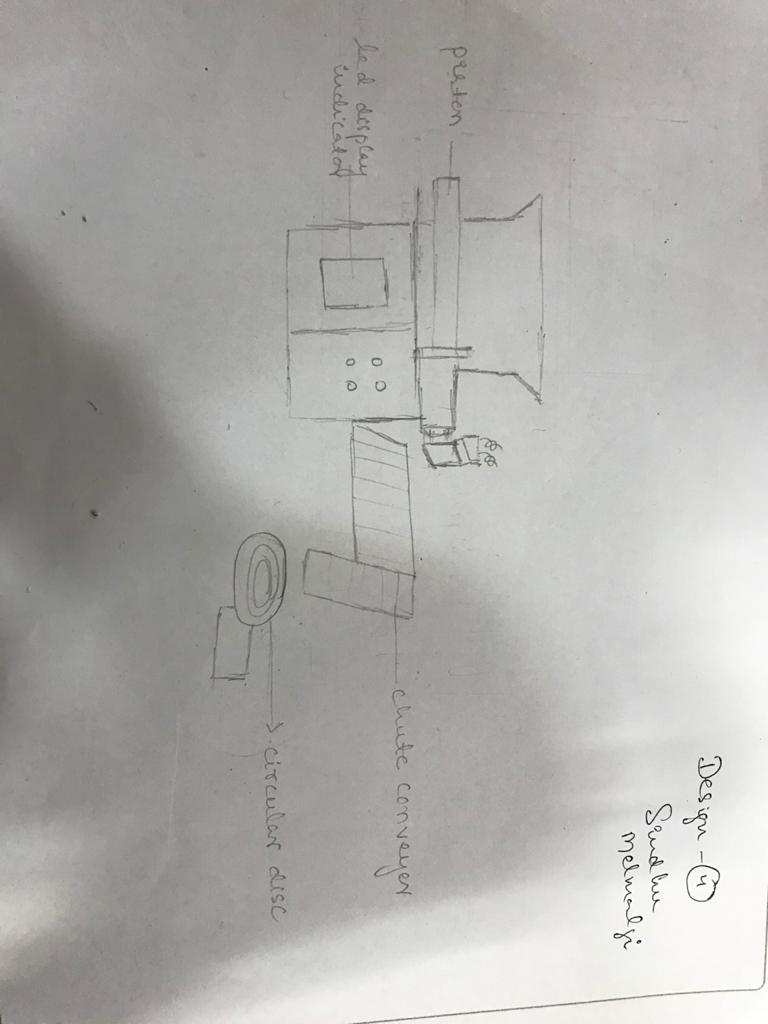 Design - 4
Sindhu
Melmalgi
piston
led display
indicator
chute conveyer
circular disc